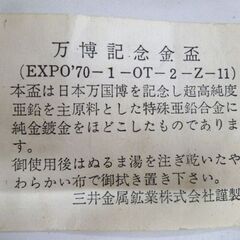 万博記念金盃
(EXPO'70-1-OT-2-Z-11)
本盃は日本万国博を記念し超高純度
亜鉛を主原料とした特殊亜鉛合金に
純金鍍金をほどこしたものでありま
す。
御使用後はぬるま湯を注ぎ乾いたや
わらかい布で御拭き置き下さい。
三井金属鉱業株式会社謹製